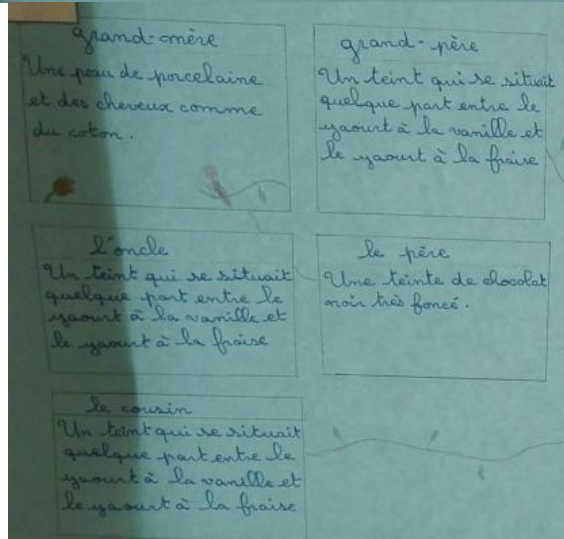 grand-mère
Une peau de porcelaine
et des cheveux comme
du coton.
grand-père
Un teint qui se situait
quelque part entre le
yaourt à la vanille et
le yaourt à la fraise
l'oncle
Un teint qui se situait
quelque part entre le
yaourt à la vanille et
le yaourt à la fraise
le père
Une teinte de chocolat
noir très foncé.
le cousin
Un teint qui se situait
quelque part entre le
yaourt à la vanille et
le yaourt à la fraise